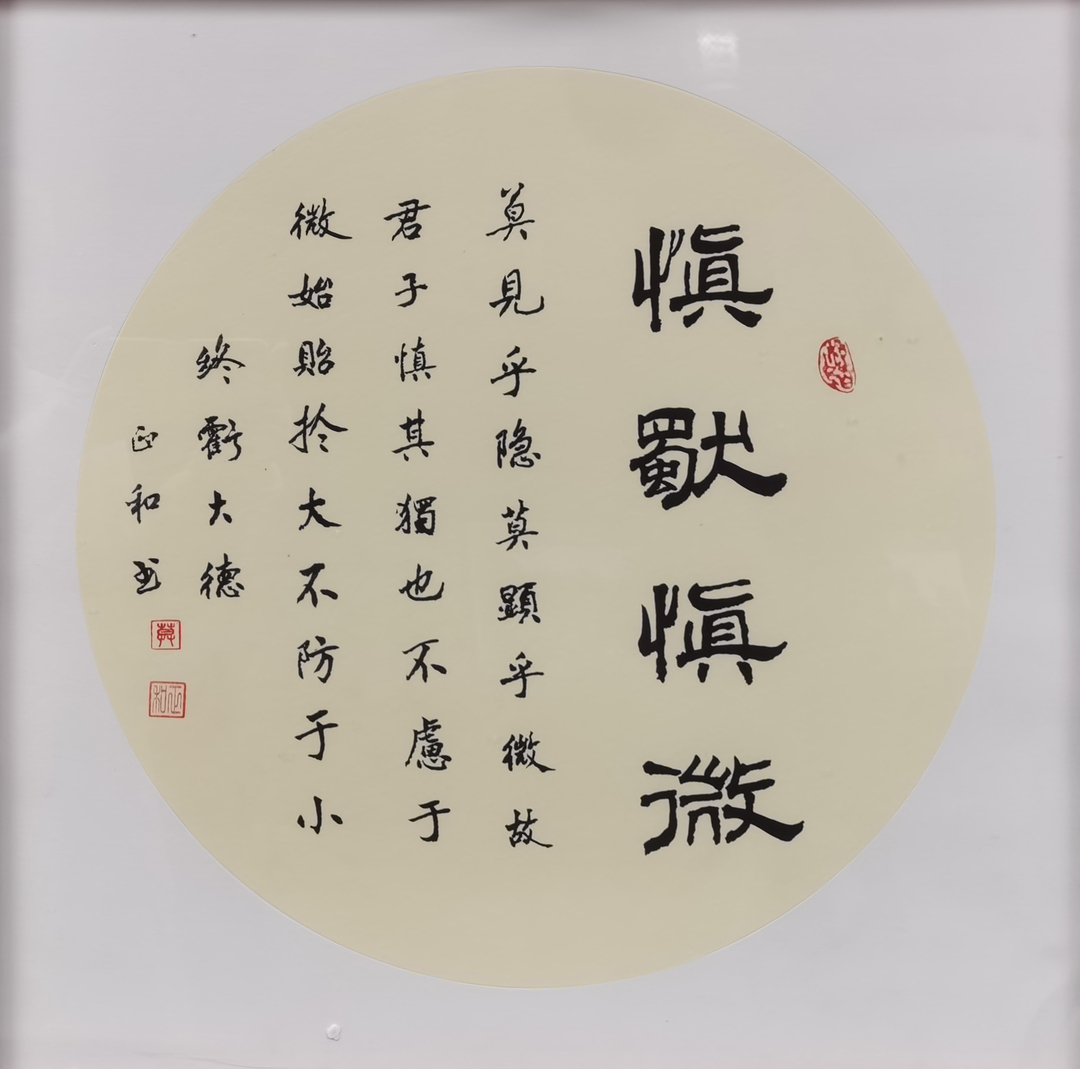 慎獨慎微
莫見乎隐莫顯乎微故
君子慎其獨也不慮于
微始貽扵大不防于小
終虧大德
正和书
黄
正和